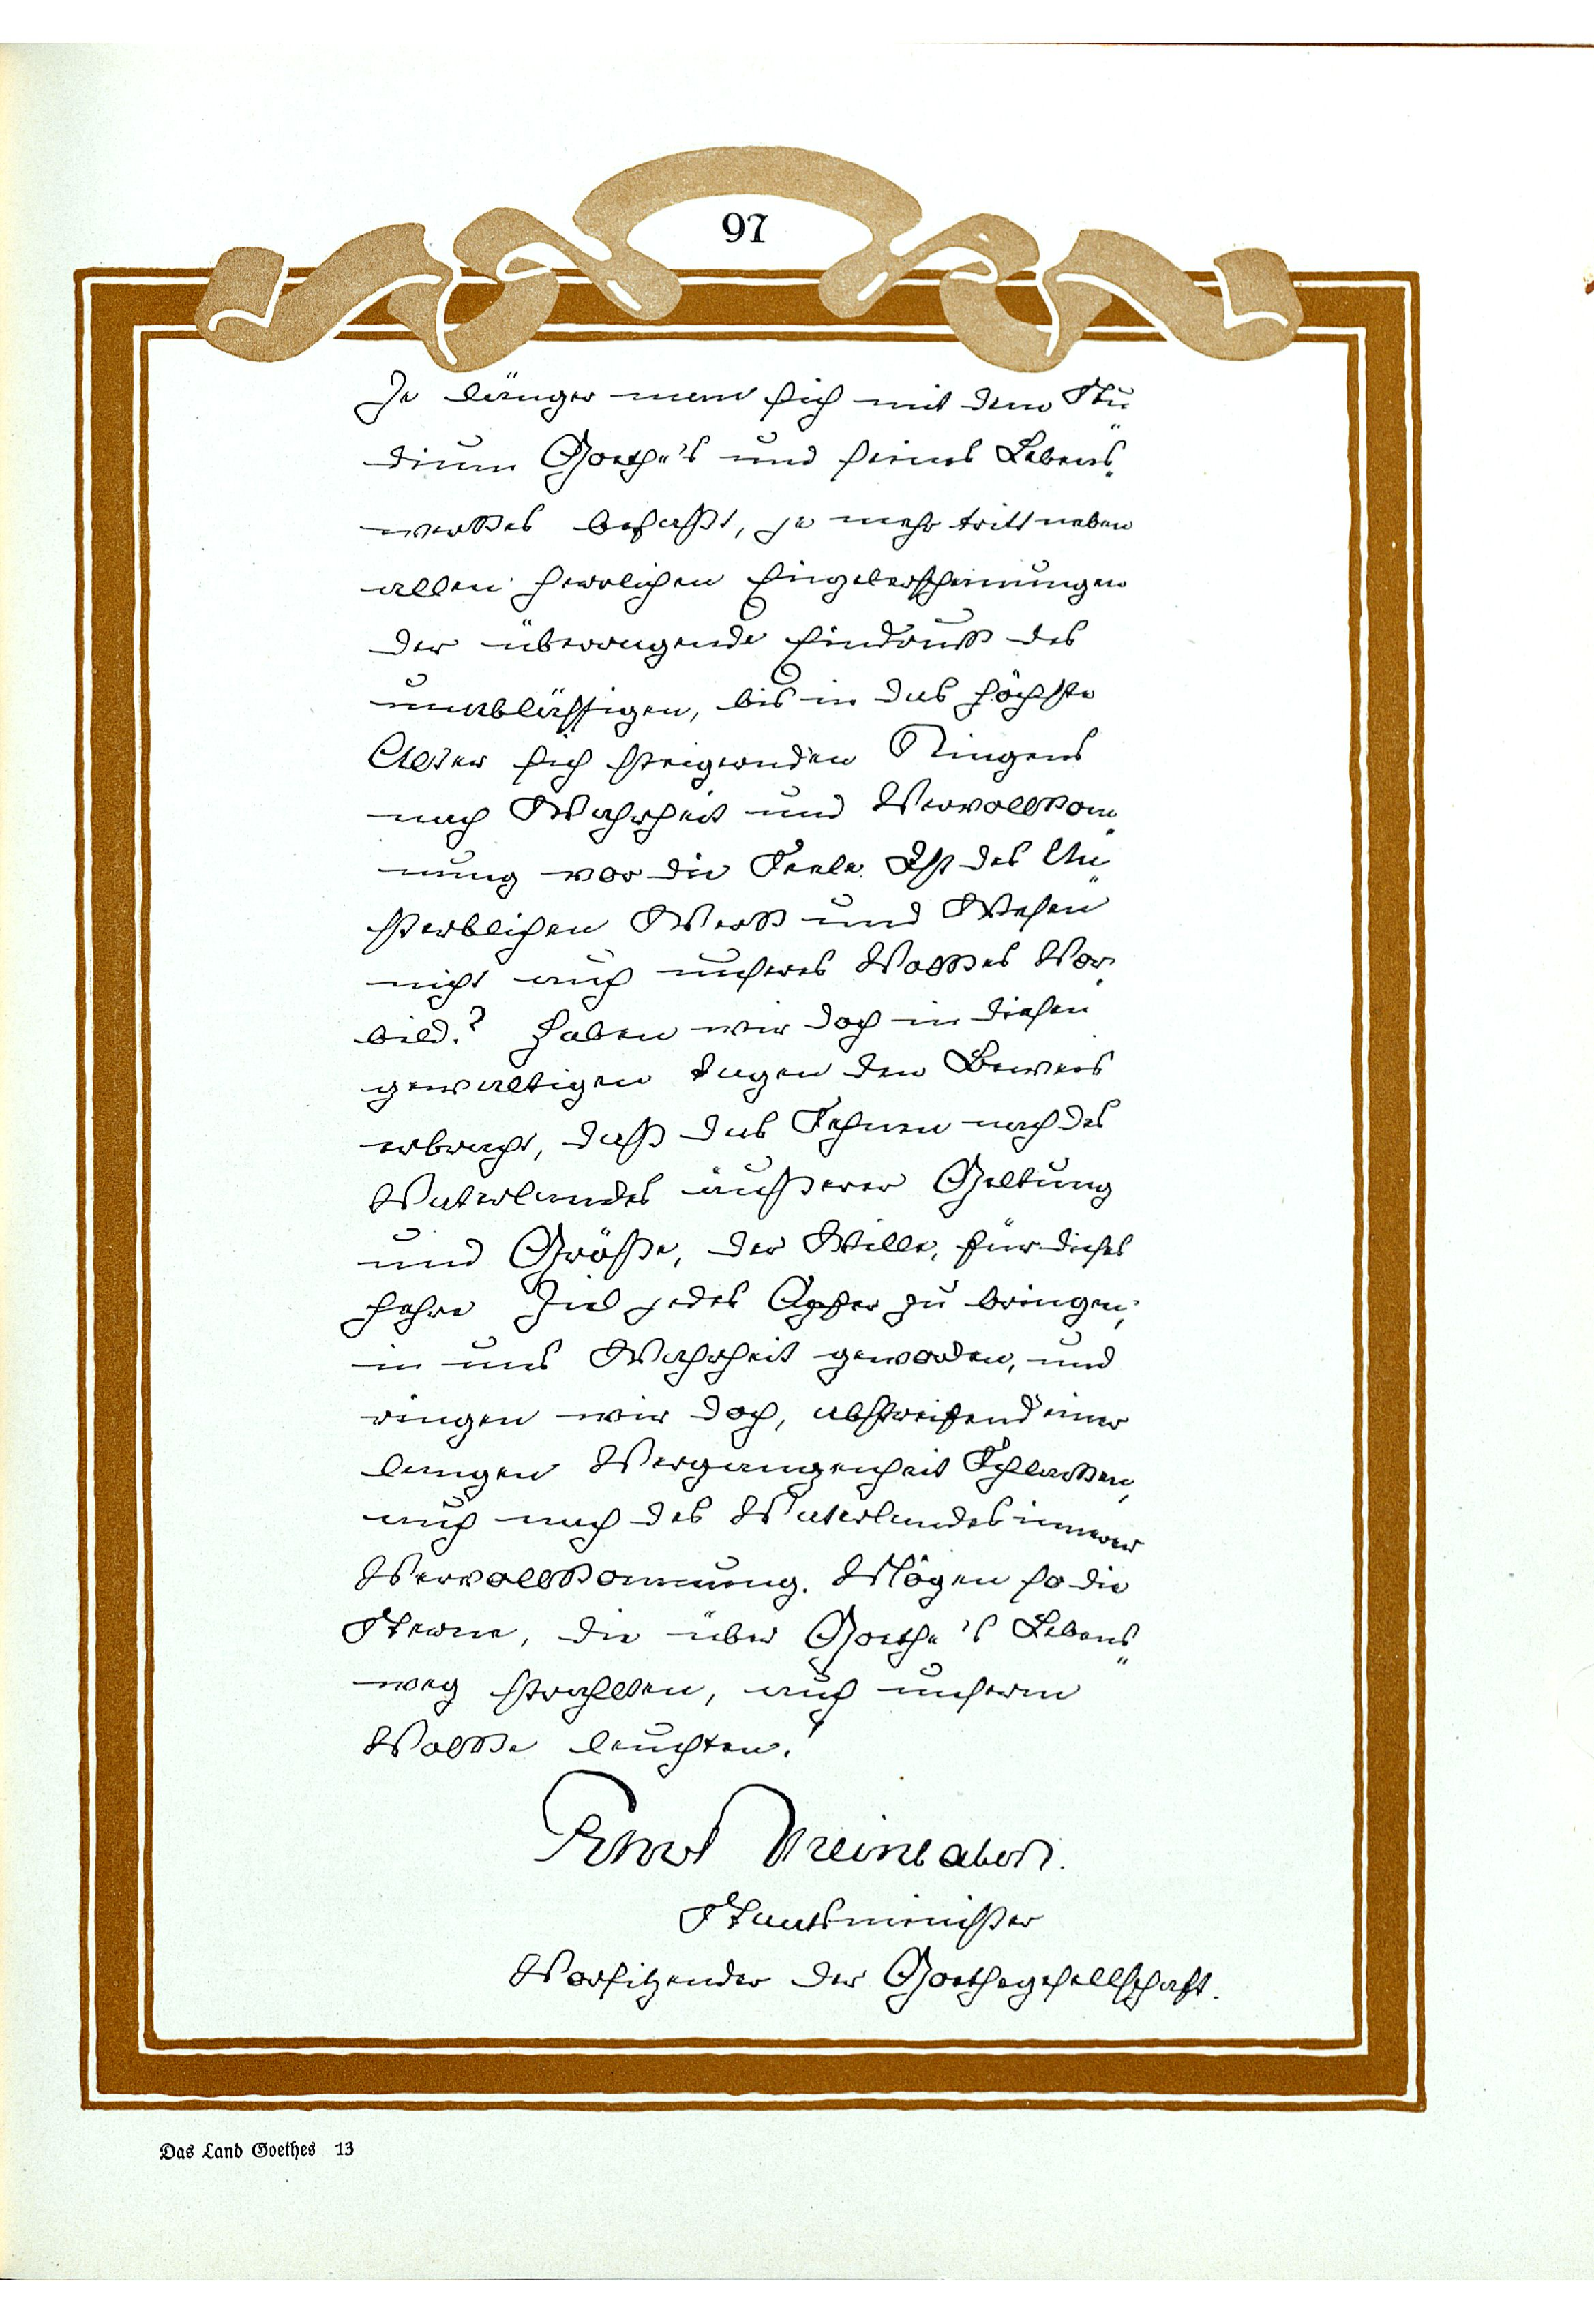 97
Je länger man sich mit dem Stu-
dium Goethe's und seines Lebens-
werkes befaßt, je mehr tritt neben
allen herrlichen Einzelerscheinungen
der überragende Eindruck des
unablässigen, bis in das höchste
Alter sich steigernden Ringens
nach Wahrheit und Vervollkom-
nung vor die Seele. Ist des Un-
sterblichen Werk und Wesen
nicht auch unseres Volkes Vor-
bild? Haben wir doch in diesen
gewaltigen Tagen den Beweis
erbracht, daß das Sehnen nach des
Vaterlandes äußerer Geltung
und Größe, der Wille, für dieses
hehre Ziel jedes Opfer zu bringen,
in uns Wahrheit geworden, und
ringen wir doch, abstreifend einer
langen Vergangenheit Schlacken,
auch nach des Vaterlandes innerer
Vervollkommnung. Mögen so die
Sterne, die über Goethe's Lebens-
weg strahlten, auch unserm
Volke leuchten!
Ernst Rheinbaben.
Staatsminister
Vorsitzender der Goethegesellschaft.
Das Land Goethes 13